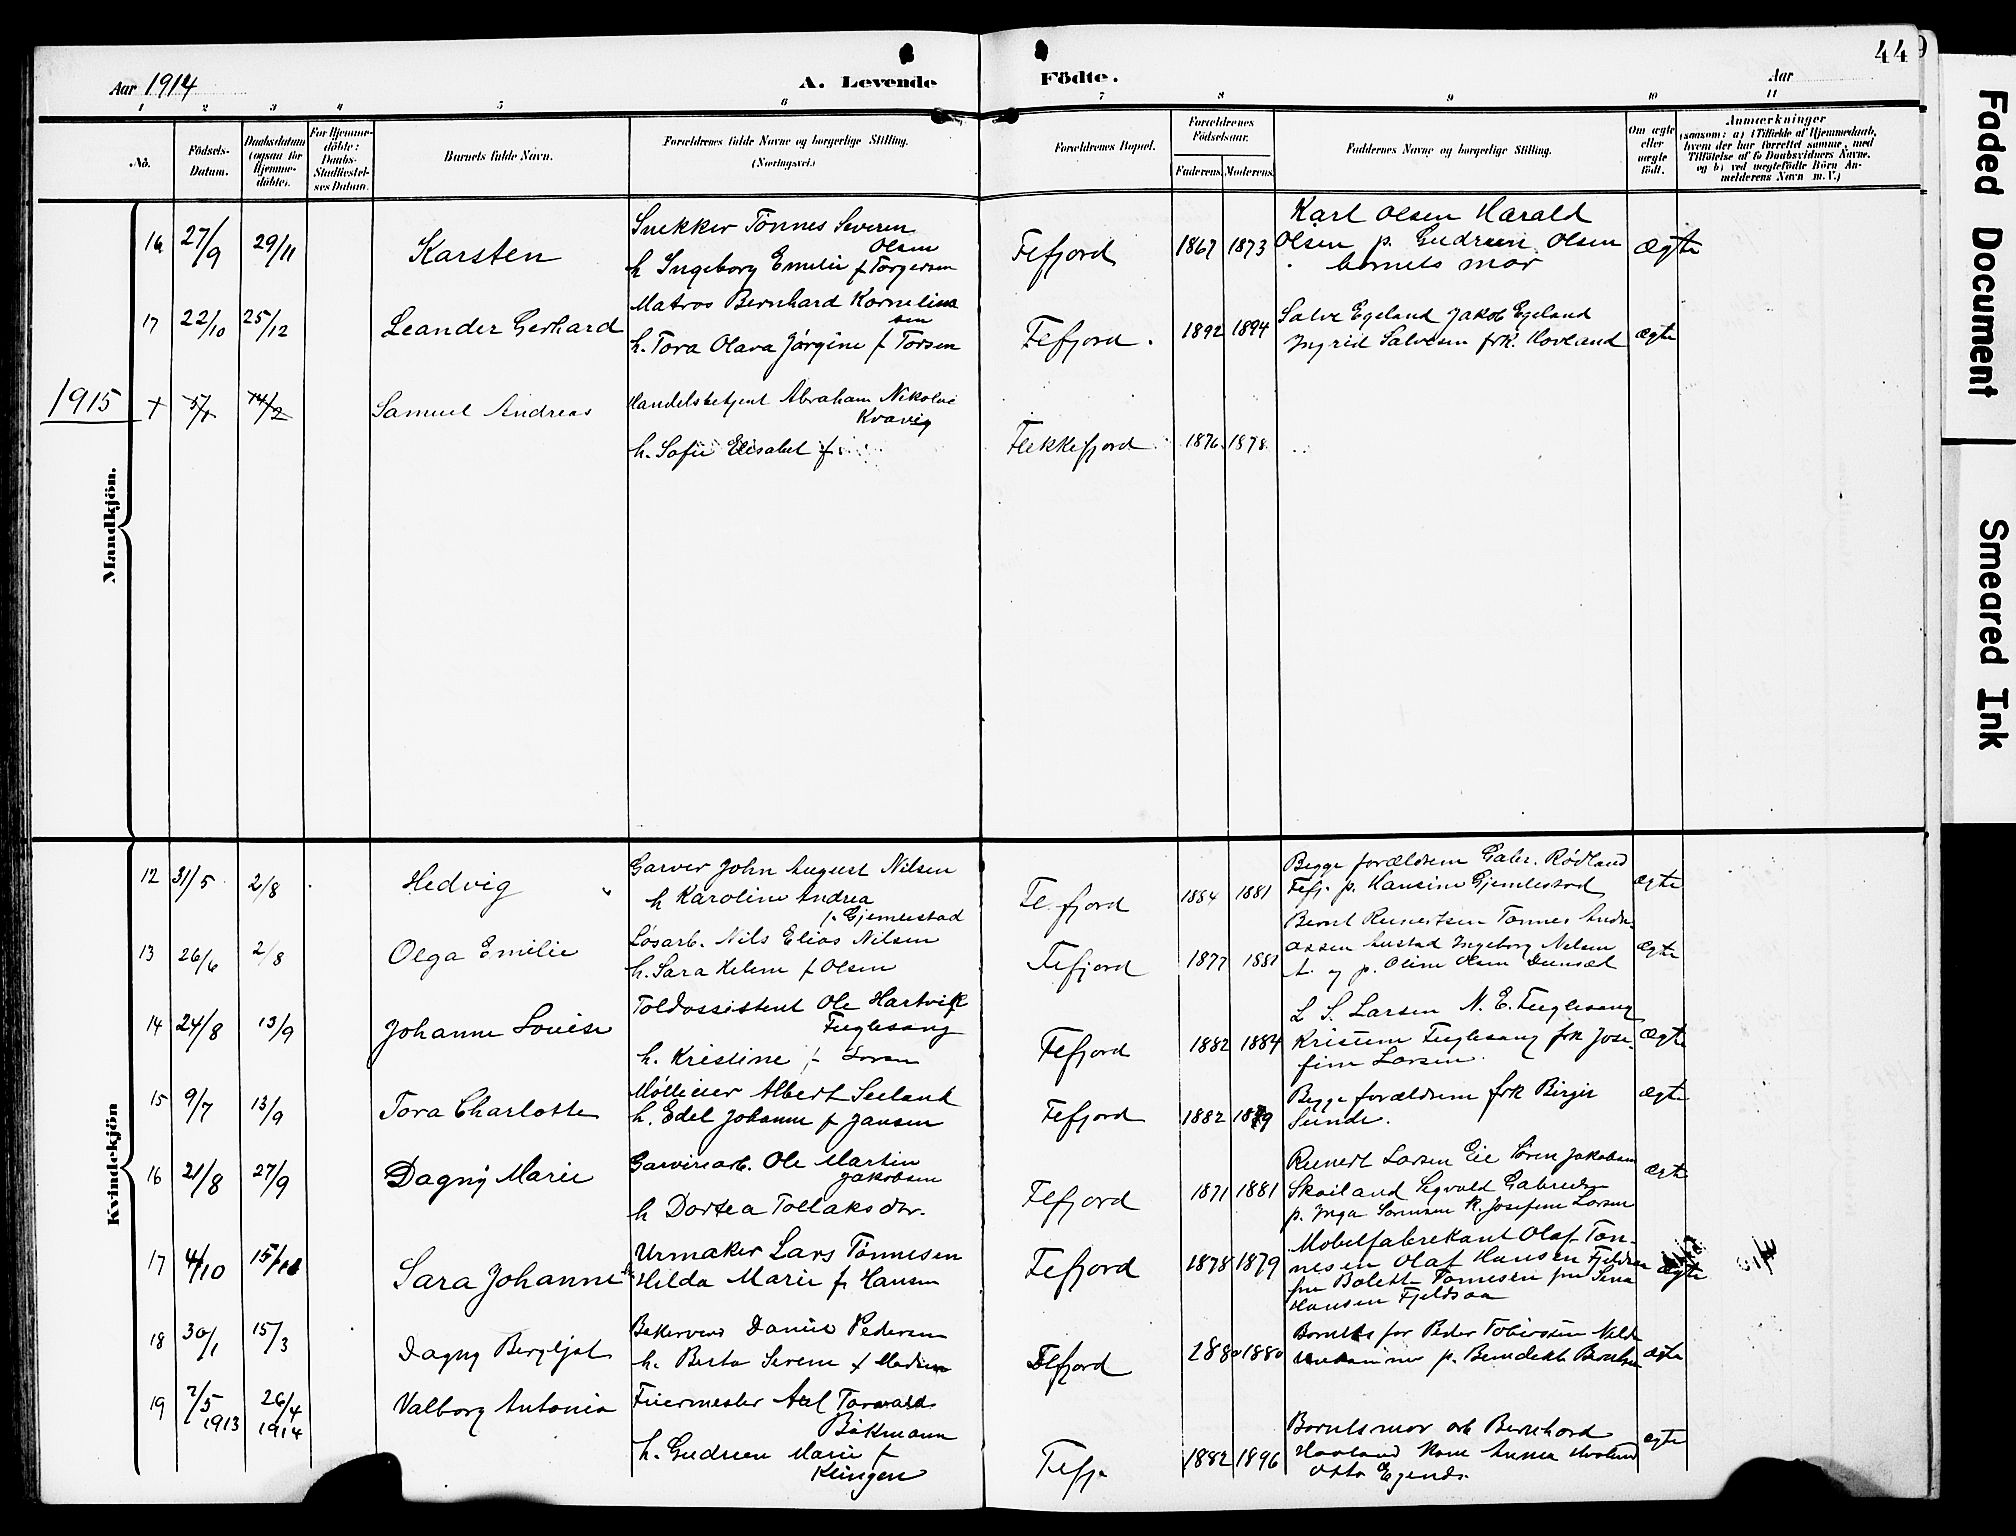 Aar 1914
A. Levende
Födte.
Aar
44
1 2 3 4 5 6 7 8 9 10 11
No.
Födsels-Datum.
Daabsdatum (ogsaa for Hjemme-döbte).
For Hjemme-döbte: Daabs-Stadfæstel-ses Datum.
Barnets fulde Navn.
Forældrenes fulde Navne og borgerlige Stilling. (Næringsvei.)
Forældrenes Bopæl.
Forældrenes Födselsaar.
Faderens. Moderens.
Faddernes Navne og borgerlige Stilling.
Om ægte eller uægte födt.
Anmærkninger
(saasom: a) i Tilfælde af Hjemmedaab, hvem der har forrettet samme, med Tilföielse af to Daabsvidners Navne. og b) ved uægtefödte Börn An-melderens Navn m. V.)
Mandkjön.
16 27/9 29/11 Karsten
Snekker Tönnes Severin Olsen
h Ingeborg Emilie f Torgersen
Fefjord 1867 1873
Karl Olsen Harald
Olsen p. Gudrun Olsen
barnets mor
Ægte
17 22/10 25/12 Leander Gerhard
Matros Bernhard Kornelius
sen
h. Tora Olava Jörgine f Torsen
Fefjord. 1892 1894
Salve Egeland Jakob Egeland
Ingrid Salvesen frk. Hovland
ægte
1915
+ 5/1 14/2 Samuel Andreas
Handelsbetjent Abraham Nikolai
Kvavig
h. Sofie Elisabet f.
Flekkefjord 1876 1878
Kvindekjön
12 31/5 2/8 Hedvig
Garver John August Nilsen
h Karoline Andrea
f. Gjemlestad
Fefjord 1884 1881
Begge forældrene Gabr. Rødland
Fefj. p. Hansine Gjemlestad
ægte
13 26/6 2/8 Olga Emilie
Løsarb. Nils Elias Nilsen
h. Sara Helene f Olsen
Fefjord 1877 1881
Bernt Reinertsen Tønnes Andre-
assen Ingeborg Nilsen
p. Oline Olsen
Ægte
14 24/8 13/9 Johanne Louise
Toldassistent Ole Hartvik
Fuglesang
h. Kristine f Larsen
Fefjord 1882 1884
L S. Larsen N. E. Fuglesang
Kristine Fuglesang frk Jose-
fine Larsen
Ægte
15 9/7 13/9 Tora Charlotte
Albert Seeland
h. Edel Johanne f Jansen
Fefjord 1882 1879
Begge forældrene frk Birgit
Sunde.
ægte
16 21/8 27/9 Dagny Marie
Garveriarb. Ole Martin
Jakobsen
h Dortea Tollaksdtr.
Fefjord 1871 1881
Reinert Larsen Eie Sören Jakobsen
Sigvald Gabrielsen
p. Inga Sørensen k. Josefine Larsen
ægte
17 4/10 15/11 Sara Johanne
Urmaker Lars Tönnesen
Hilda Marie f Hansen
Fefjord 1878 1879
Møbelfabrikant Olaf Tøn-
nesen Olaf Hansen Fjeldsaa
fru Bolette Tønnesen fru Sina
Hansen Fjeldsaa
ægte
18 30/1 15/3 Dagny Bergljot
Daniel Pedersen
h. Berta Serine f
Fefjord 1880 1880
Barnets far Peder Tobiassen
p. Benedikte
ægte
19 7/5 1913 26/4 1914 Valborg Antonia
Feiermester Axel Torvald
Bökmann
h. Gudrun Marie f
Klingen
Fefj. 1882 1896
Barnets mor Bernhard
Hovland Anna Hovland
Otto
ægte
Faded Document
Smeared Ink